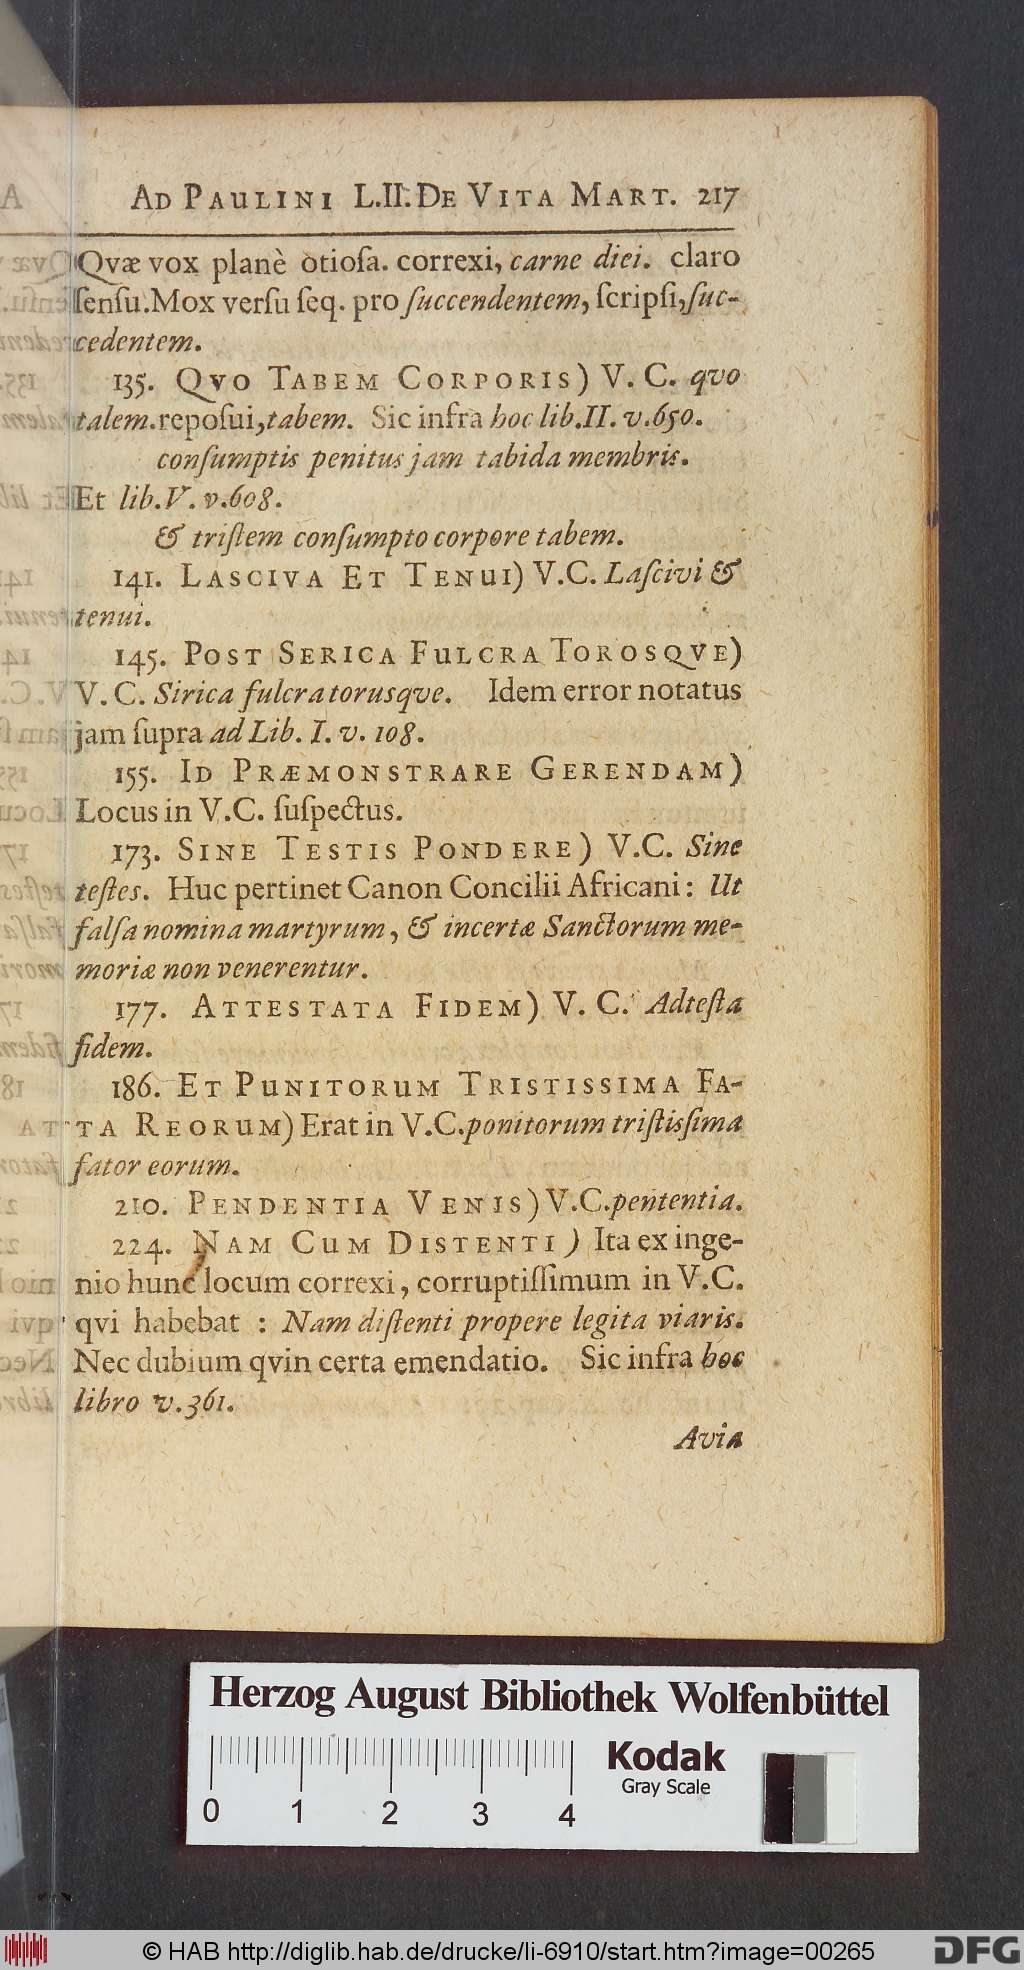 AD PAULINI L.II. DE VITA MART. 217
Qvæ vox planè otiosa. correxi, carne diei. claro
sensu. Mox versu seq. pro succendentem, scripsi, suc-
cedentem.
135. QVO TABEM CORPORIS) V. C. qvo
talem. reposui, tabem. Sic infra hoc lib. II. v. 650.
consumptis penitus jam tabida membris.
Et lib. V. v. 608.
& tristem consumpto corpore tabem.
141. LASCIVA ET TENUI) V.C. Lascivi &
tenui.
145. POST SERICA FULCRA TOROSQVE)
V. C. Sirica fulcra torusqve. Idem error notatus
jam supra ad Lib. I. v. 108.
155. ID PRÆMONSTRARE GERENDAM)
Locus in V.C. suspectus.
173. SINE TESTIS PONDERE) V.C. Sine
testes. Huc pertinet Canon Concilii Africani: Ut
falsa nomina martyrum, & incertæ Sanctorum me-
moriæ non venerentur.
177. ATTESTATA FIDEM) V. C. Adtesta
fidem.
186. ET PUNITORUM TRISTISSIMA FA-
TA REORUM) Erat in V.C. ponitorum tristissima
fator eorum.
210. PENDENTIA VENIS) V.C. pententia.
224. NAM CUM DISTENTI) Ita ex inge-
nio hunc locum correxi, corruptissimum in V.C.
qvi habebat : Nam distenti propere legita viaris.
Nec dubium qvin certa emendatio. Sic infra hoc
libro v. 361.
Avia
Herzog August Bibliothek Wolfenbüttel
Kodak
Gray Scale
0 1 2 3 4
© HAB http://diglib.hab.de/drucke/li-6910/start.htm?image=00265
DFG